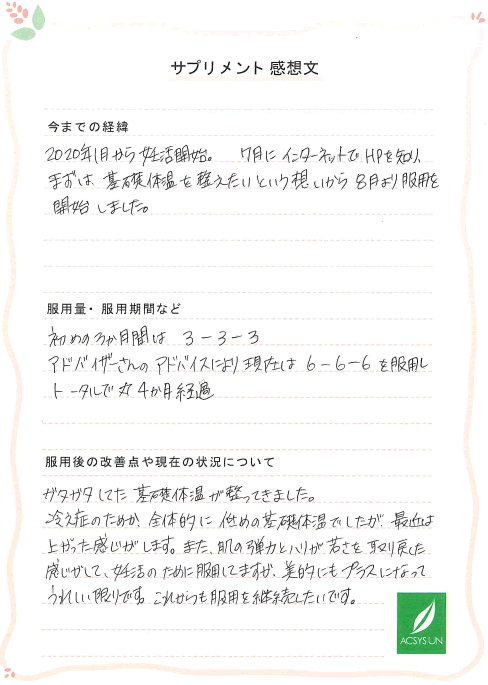 サプリメント 感想文
今までの経緯
2020年1月から妊活開始。 7月にインターネットでHPを知り、
まずは、基礎体温を整えたいという想いから8月より服用を
開始しました。
服用量・服用期間など
初めの3か月間は 3－3－3
アドバイザーさんのアドバイスにより現在は 6－6－6 を服用し
トータルで丸4か月経過
服用後の改善点や現在の状況について
ガタガタしてた基礎体温が整ってきました。
冷え症のためか、全体的に低めの基礎体温でしたが、最近は
上がった感じがします。また、肌の弾力とハリが若さを取り戻した
感じがして、妊活のために服用してますが、美的にもプラスになって
うれしい限りです。これからも服用を継続したいです。
ACSYSUN